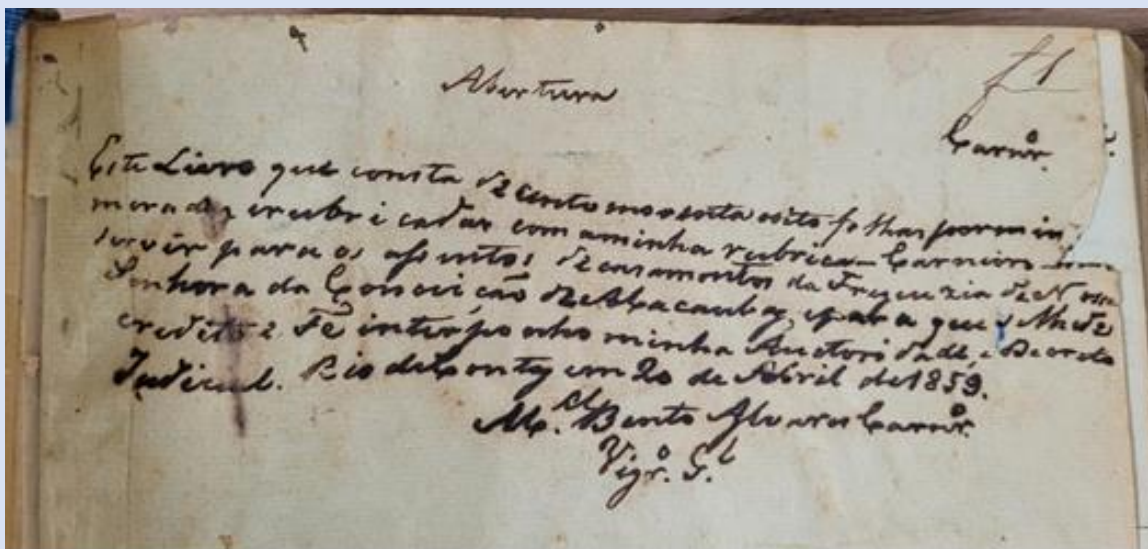 f 1
Abertura
Carnr.º
Este Livro que consta de cento noventa oito folhas por mim nu
meradas, e rubricadas com a minha rubrica — Carneiro —
servir para os assentos de casamentos da Freguezia de Nossa
Senhora da Conceição de Macaubas, e para que se lhe dê
credito e Fé interponho minha Auctoridade, e Decreto
Judicial. Rio de Contas em 20 de Abril de 1859.
M.el Bento Alvares Carnr.º
Vigr.º G.l